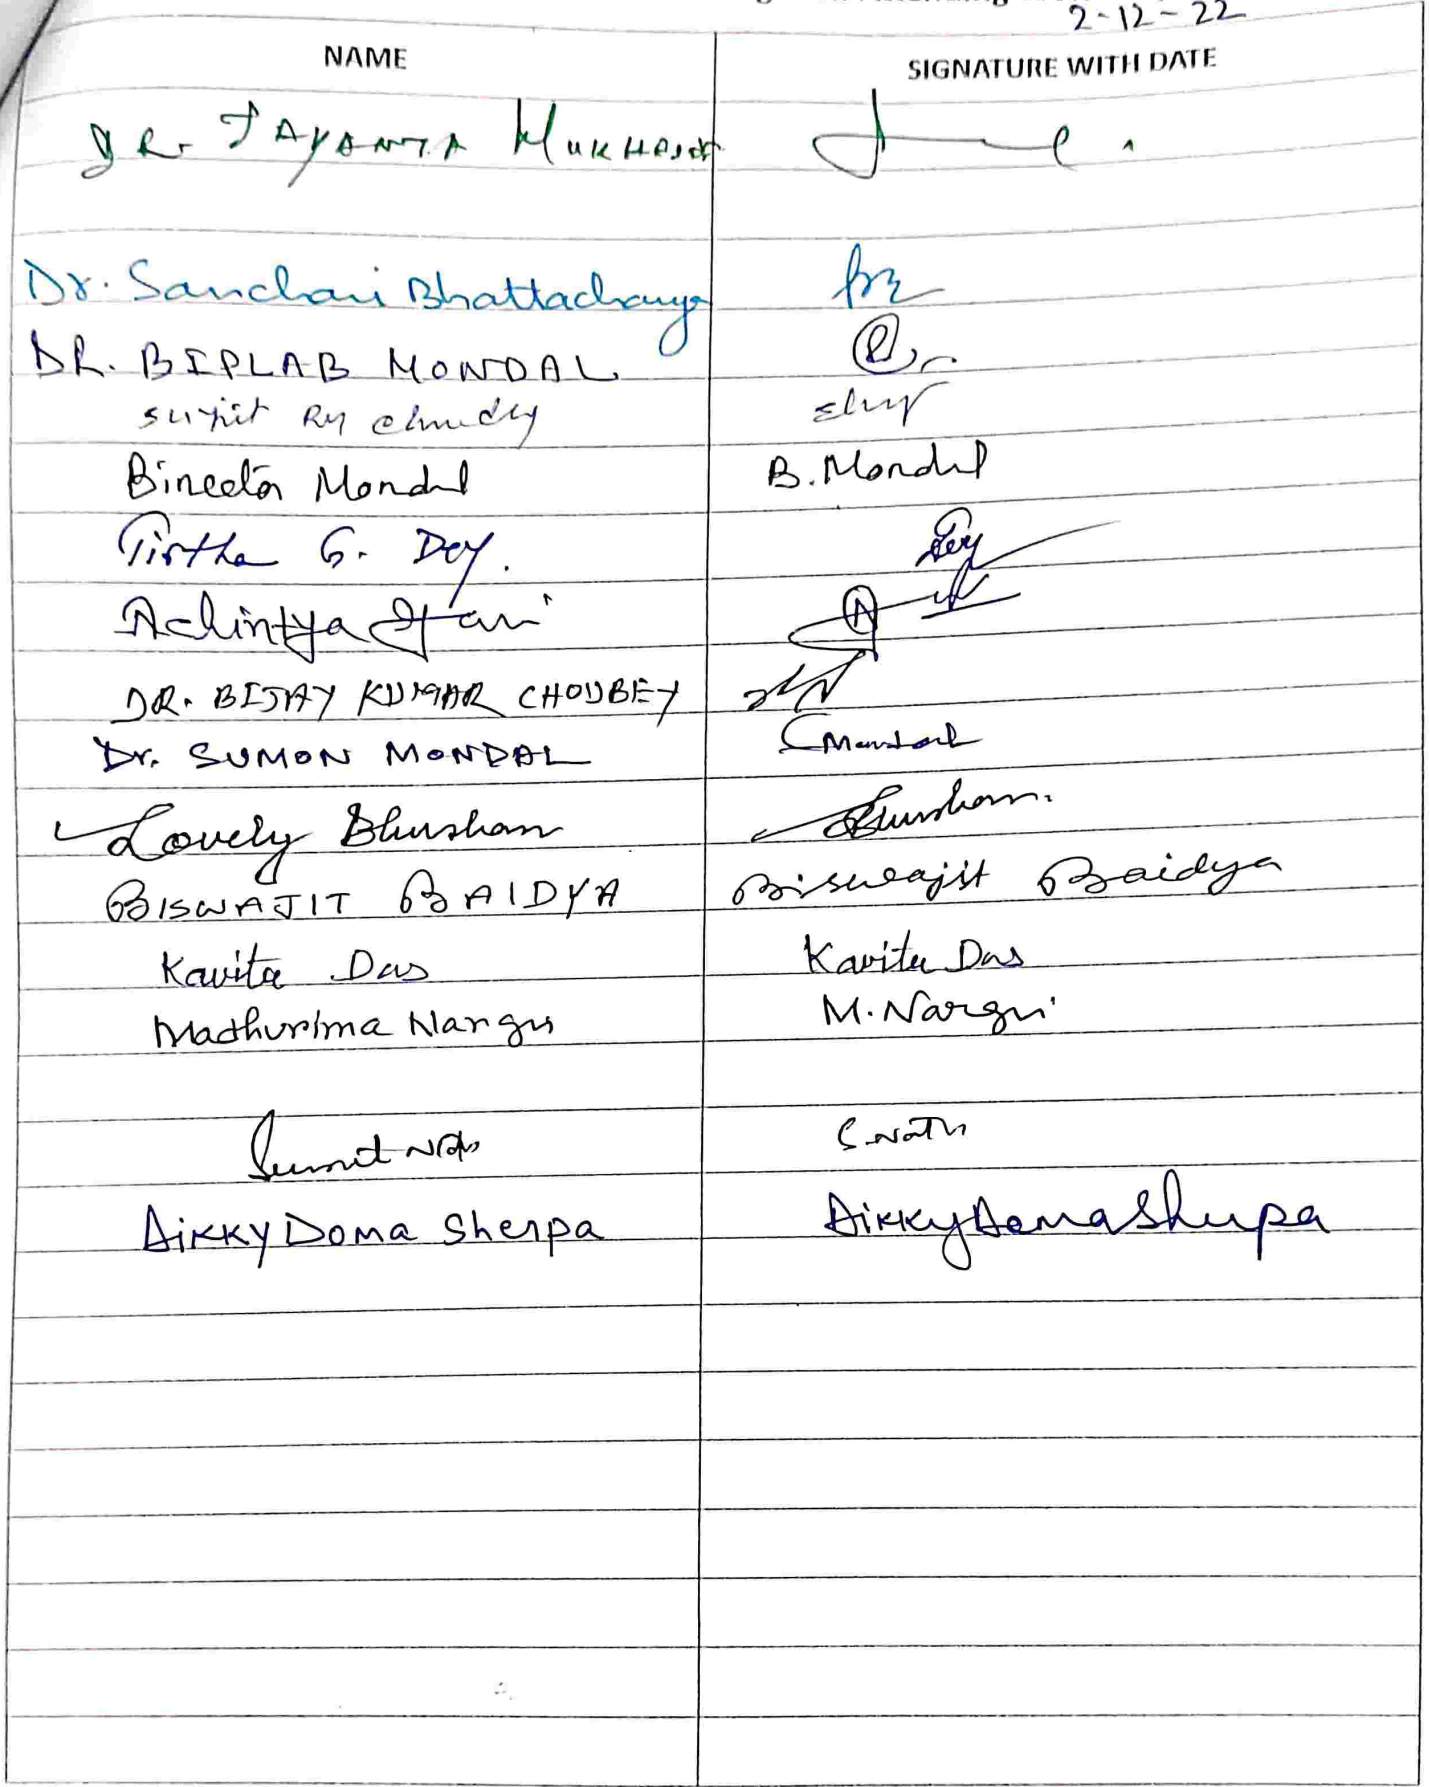 2-12-22
NAME SIGNATURE WITH DATE
DR. JAYANTA MUKHERJEE
Dr. Sanchari Bhattacharya
DR. BIPLAB MONDAL
Sujit Ry
Bineeta Mondal B. Mondal
Tirtha G. Dey. Dey
Achintya Hari
DR. BIJAY KUMAR CHOUBEY
Dr. SUMON MONDAL SMondal
Lovely Bhushan Bhushan.
BISWAJIT BAIDYA Biswajit Baidya
Kavita Das Kavita Das
Madhurima Nargis M. Nargis
Sumit Nath S. Nath
Dikky Doma Sherpa Dikky Doma Sherpa